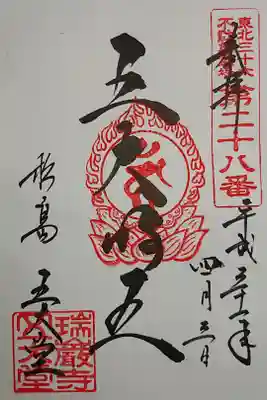 奉拝
東北三十六
不動尊霊場
第二十八番
五大明王
平成三十一年
四月
松島 五大堂
瑞巖寺
五大堂